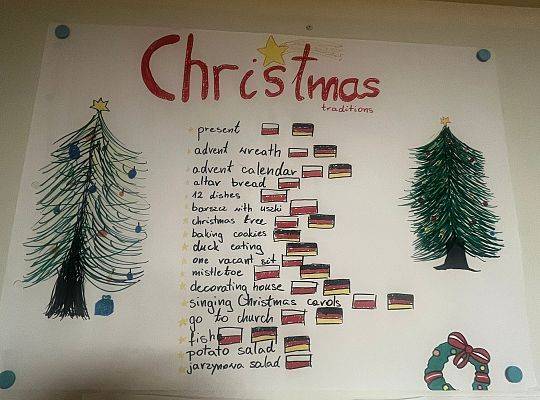 Christmas
traditions
present
advent wreath
advent calendar
altar bread
12 dishes
barszcz with uszki
christmas tree
baking cookies
duck eating
one vacant sit
mistletoe
decorating house
singing Christmas carols
go to church
fish
potato salad
jarzynowa salad